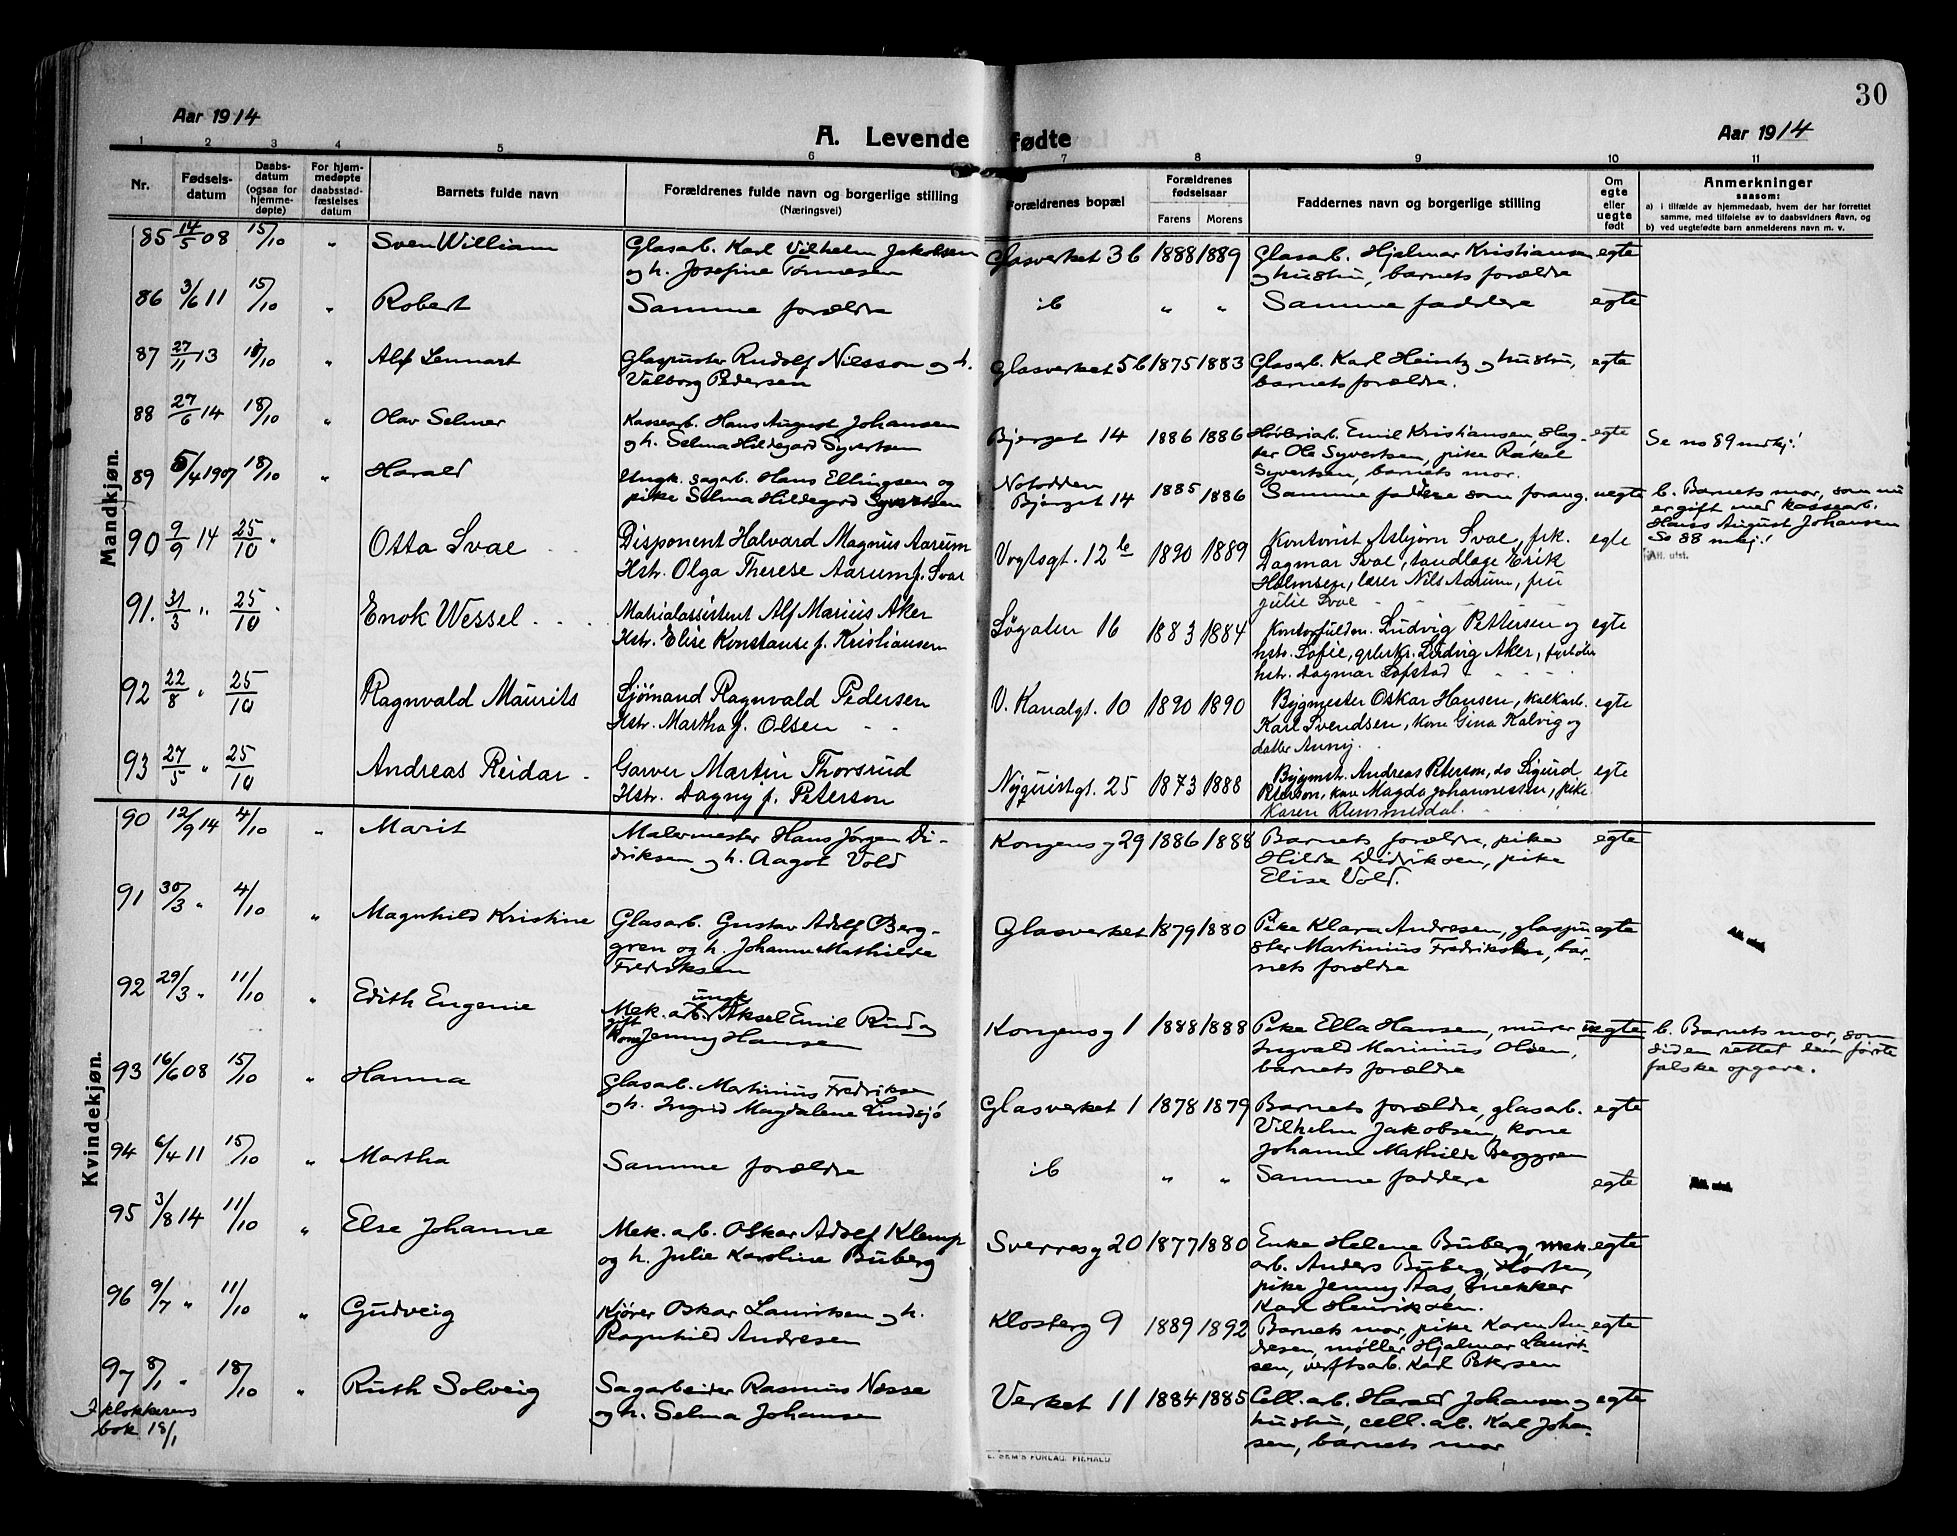 30
Aar 1914
A. Levende fødte
Aar 1914
1 2 3 4 5 6 7 8 9 10 11
Nr.
Fødsels-
datum
Daabs-
datum
(ogsaa for
hjemme-
døpte)
For hjem-
medøpte
daabsstad-
fæstelses
datum
Barnets fulde navn
Forældrenes fulde navn og borgerlige stilling
(Næringsvei)
Forældrenes bopæl
Forældrenes
fødselsaar
Farens Morens
Faddernes navn og borgerlige stilling
Om
egte
eller
uegte
født
Anmerkninger
saasom:
a) i tilfælde av hjemmedaab, hvem der har forrettet
samme, med tilføielse av to daabsvidners navn, og
b) ved uegtefødte barn anmelderens navn m. v.
Mandkjøn.
85 14/5 08 15/10 " Sven William
Glasarb. Karl Vilhelm Jakobsen
og h. Josefine Tønnesen
Glasverket 3b 1888 1889
Glasarb. Hjalmar Kristiansen
og hustru, barnets forældre
egte
86 3/6 11 15/10 " Robert
Samme forældre
ib " "
Samme faddere
egte
87 27/11 13 10/10 " Alf Lennart
Glaspuster Rudolf Nilsson og h.
Valborg Pedersen
Glasverket 5b 1875 1883
Glasarb. Karl Heintz og hustru,
barnets forældre.
egte
88 27/6 14 18/10 " Olav Selmer
Kassearb. Hans August Johansen
og h. Selma Hildegard Syvertsen
Bjerget 14 1886 1886
Høvleriarb. Emil Kristiansen, Hag-
ber Ole Syvertsen, pike Rakel
Syvertsen, barnets mor.
egte
Se no 89 mdkj!
89 5/4 1907 18/10 " Harald
Ungk. sagarb. Hans Ellingsen og
pike Selma Hildegard Syvertsen
Notodden
Bjerget 14 1885 1886
Samme faddere som forang.
uegte
b. Barnets mor, som nu
er gift med kassearb.
Hans August Johansen
Se 88 mkj!
90 9/9 14 25/10 " Otto Svae
Disponent Halvard Magnus Aarum
Hstr. Olga Therese Aarum f. Svae
Vogtsgt. 12 b 1890 1889
Kontorist Asbjørn Svae, frk.
Dagmar Svae, tandlæge Erik
Holmsen, lærer Nils Aarum, fru
Julie Svae
egte
Att. utst.
91. 31/3 " 25/10 Enok Wessel
Matrialassistent Alf Marius Aker
Hstr. Elise Konstanse f. Kristiansen
Løgaten 16 1883 1884
Kontorfuldm. Ludvig Pettersen og
hstr. Sofie, Ludvig Aker,
hstr. Dagmar Lofstad
egte
92 22/8 " 25/10 Ragnvald Maurits
Sjømand Ragnvald Pedersen
Hstr. Martha f. Olsen
V. Kanalgt. 10 1890 1890
Bygmester Oskar Hansen, kalkarb.
Karl Svendsen, kone Gina Kalvig og
datter Anny.
egte
93 27/5 " 25/10 Andreas Reidar
Garver Martin Thorsrud
Hstr. Dagny f. Peterson
Nyquistgt. 25 1873 1888
Bygmstr. Andreas Peterson, do Sigurd
Peterson, kone Magda Johannessen, pike
Karen Klemmetsdal.
egte
Kvindekjøn.
90 12/9 14 4/10 " Marit
Malermester Hans Jørgen Di-
driksen og h. Aagot Vold
Kongensg 29 1886 1888
Barnets forældre, pike
Hilda Didriksen, pike
Elise Vold.
egte
91 30/3 " 4/10 " Magnhild Kristine
Glasarb. Gustav Adolf Berg-
gren og h. Johanne Mathilde
Fredriksen
Glasverket 1879 1880
Pike Klara Andresen, glaspu-
ster Martinius Fredriksen, bar-
nets forældre
egte
Att. utst.
92 29/3 " 11/10 " Edith Eugenie
Mek. arb. ungk. Aksel Emil Rud og
gift kone Jenny Hansen
Kongensg 1 1888 1888
Pike Ella Hansen, murer
Ingvald Marinius Olsen,
barnets forældre
uegte
b. Barnets mor, som
siden rettet den første
falske opgave.
93 16/6 08 15/10 " Hanna
Glasarb. Martinius Fredriksen
og h. Ingrid Magdalene Lindsjø
Glasverket 1 1878 1879
Barnets forældre, glasarb.
Vilhelm Jakobsen, kone
Johanne Mathilde Berggren
egte
94 6/4 11 15/10 " Martha
Samme forældre
ib " "
Samme faddere
egte
Att. utst.
95 3/8 14 11/10 " Else Johanne
Mek. arb. Oskar Adolf Klemp
og h. Julie Karoline Buberg
Sverresg 20 1877 1880
Enke Helene Buberg, mek.
arb. Anders Buberg, Horten,
pike Jenny Aas, snekker
Karl Henriksen.
egte
96 9/7 " 11/10 " Gudveig
Kjører Oskar Lauritsen og h.
Ragnhild Andresen
Klosterg 9 1889 1892
Barnets mor, pike Karen An-
dresen, møller Hjalmar Laurit-
sen, verftsarb. Karl Petersen
egte
97 8/1 " 18/10 " Ruth Solveig
I klokkerens
bok 18/1
Sagarbeider Rasmus Næsse
og h. Selma Johansen
Verket 11 1884 1885
Cell. arb. Harald Johansen og
hustru, cell. arb. Karl Johan-
sen, barnets mor
egte
E. SEM'S FORLAG, FREHALD